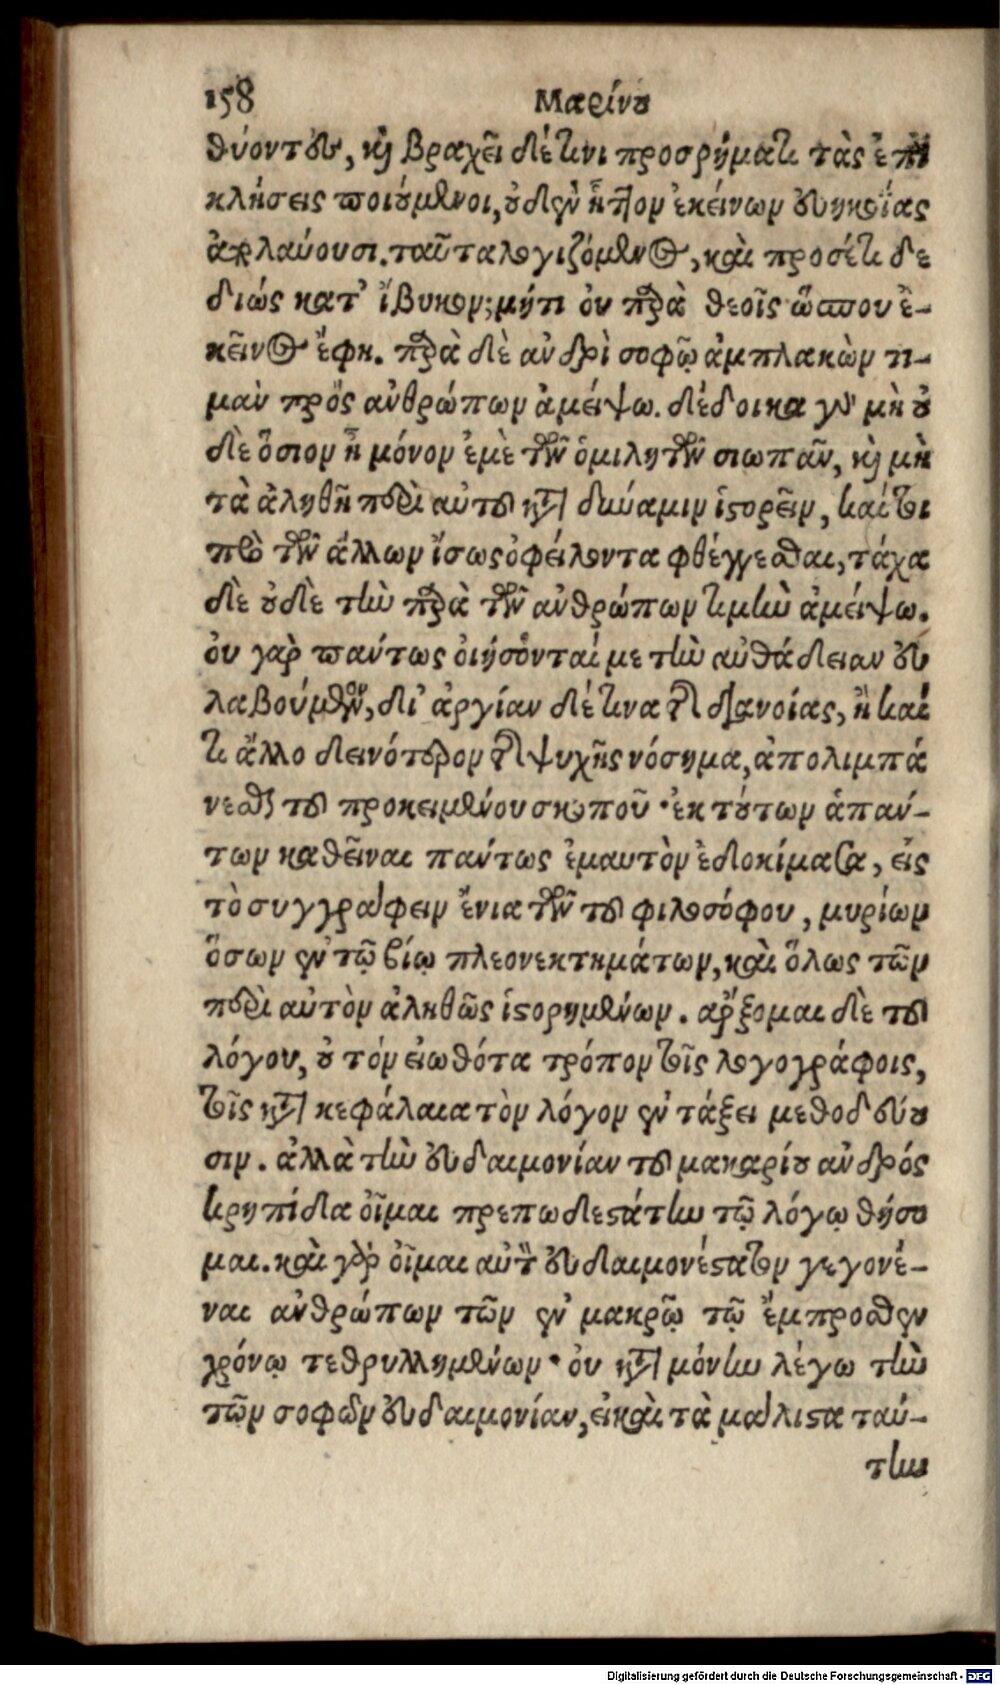 158 Μαρίνου
θύοντες, καὶ βραχεῖ δέ τινι προσρήματι τὰς ἐπι
κλήσεις ποιούμενοι, οὐδὲν ἧττον ἐκείνων εὐηκοΐας
ἀπολαύουσι. ταῦτα λογιζόμενος, καὶ προσέτι δε
διὼς κατ' ἴβυκον; μήτι ὀυ παρὰ θεοῖς ὥσπου ἐ-
κεῖνος ἔφη. παρὰ δὲ ἀνδρὶ σοφῷ ἀμπλακὼν τι-
μὰν πρὸς ἀνθρώπων ἀμείψω. δέδοικα γὰρ μὴ οὐ
δὲ ὅσιον ἦ μόνον ἐμὲ τῶν ὁμιλητῶν σιωπᾶν, καὶ μὴ
τὰ ἀληθῆ περὶ αὐτοῦ κατὰ δύναμιν ἱστορεῖν, καίτοι
πρὸ τῶν ἄλλων ἴσως ὀφείλοντα φθέγγεσθαι, τάχα
δὲ οὐδὲ τὴν παρὰ τῶν ἀνθρώπων τιμὴν ἀμείψω.
ὀυ γὰρ πάντως ὀιήσονταί με τὴν αὐθάδειαν εὐ
λαβούμενον, δι' ἀργίαν δέ τινα τῆς διανοίας, ἢ καί
τι ἄλλο δεινότερον τῆς ψυχῆς νόσημα, ἀπολιμπά
νεσθαι τοῦ προκειμένου σκοποῦ · ἐκ τούτων ἁπάν-
των καθεῖναι πάντως ἐμαυτὸν ἐδοκίμασα, εἰς
τὸ συγγράφειν ἔνια τῶν τοῦ φιλοσόφου, μυρίων
ὅσων ἐν τῷ βίῳ πλεονεκτημάτων, καὶ ὅλως τῶν
περὶ αὐτὸν ἀληθῶς ἱστορημένων. ἄρξομαι δὲ τοῦ
λόγου, οὐ τὸν εἰωθότα τρόπον τοῖς λογογράφοις,
τοῖς κατὰ κεφάλαια τὸν λόγον ἐν τάξει μεθοδεύου
σιν. ἀλλὰ τὴν εὐδαιμονίαν τοῦ μακαρίου ἀνδρός
κρηπίδα οἶμαι πρεπωδεστάτην τῷ λόγῳ θήσο
μαι. καὶ γὰρ οἶμαι αὐτὸν εὐδαιμονέστατον γεγονέ-
ναι ἀνθρώπων τῶν ἐν μακρῷ τῷ ἔμπροσθεν
χρόνῳ τεθρυλλημένων · ὀυ κατὰ μόνην λέγω τὴν
τῶν σοφῶν εὐδαιμονίαν, εἰ καὶ τὰ μάλιστα ταύ-
την
Digitalisierung gefördert durch die Deutsche Forschungsgemeinschaft - DFG